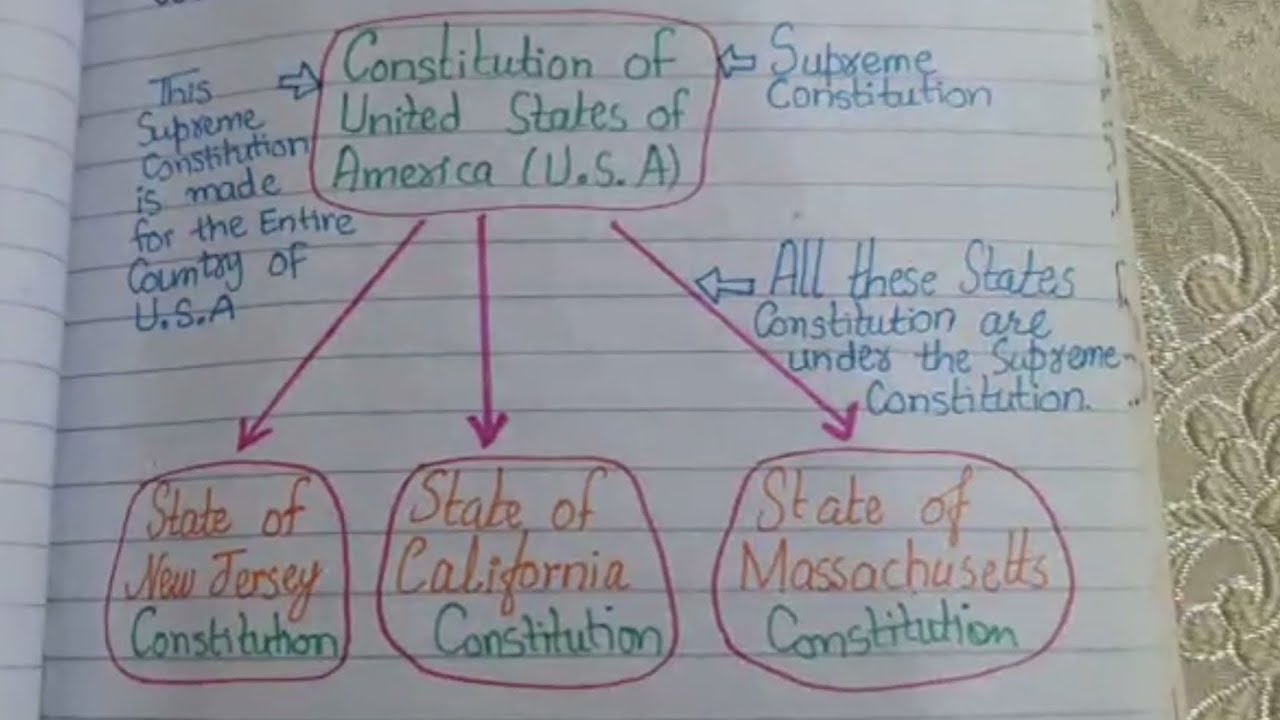 Constitution of
United States of
America (U.S.A)
Supreme
Constitution
This
Supreme
Constitution
is made
for the Entire
Country of
U.S.A
All these States
Constitution are
under the Supreme
Constitution.
State of
New Jersey
Constitution
State of
California
Constitution
State of
Massachusetts
Constitution